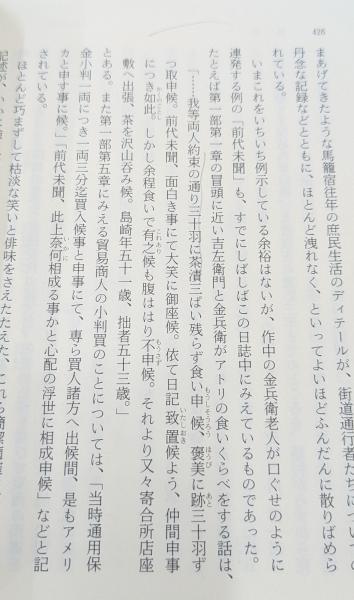 426
まあげてきたような馬籠宿往年の庶民生活のディテールが、街道通行者たちについての
丹念な記録などとともに、ほとんど洩れなく、といってよいほどふんだんに散りばめら
れている。
いまこれをいちいち例示している余裕はないが、作中の金兵衛老人が口ぐせのように
連発する例の「前代未聞」も、すでにしばしばこの日誌中にみえているものであった。
たとえば第一部第一章の冒頭に近い吉左衛門と金兵衛がアトリの食いくらべをする話は、
「……我等両人約束の通り三十羽に茶漬三ばい残らず食い申候。褒美に跡三十羽ず
もうしそうろう ほうび あと
つ取申候。前代未聞、面白き事にて大笑に御座候。依て日記致置候よう、仲間申事
いたしおき
につき如此。しかし余程食いで有之候も腹ははり不申候。それより又々寄合所店座
かくのごとし これあり もうさず
敷へ出張、茶を沢山呑み候。島崎年五十一歳、拙者五十三歳。」
とある。また第一部第五章にみえる貿易商人の小判買のことについては、「当時通用保
金小判一両につき一両三分迄買入候事と申事にて、専ら買人諸方へ出候間、是もアメリ
カと申す事に候。」「前代未聞、此上奈何相成る事かと心配の浮世に相成申候」などと記
いかに
されている。
ほとんど巧まずして枯淡な笑いと俳味をさえたたえた、これら